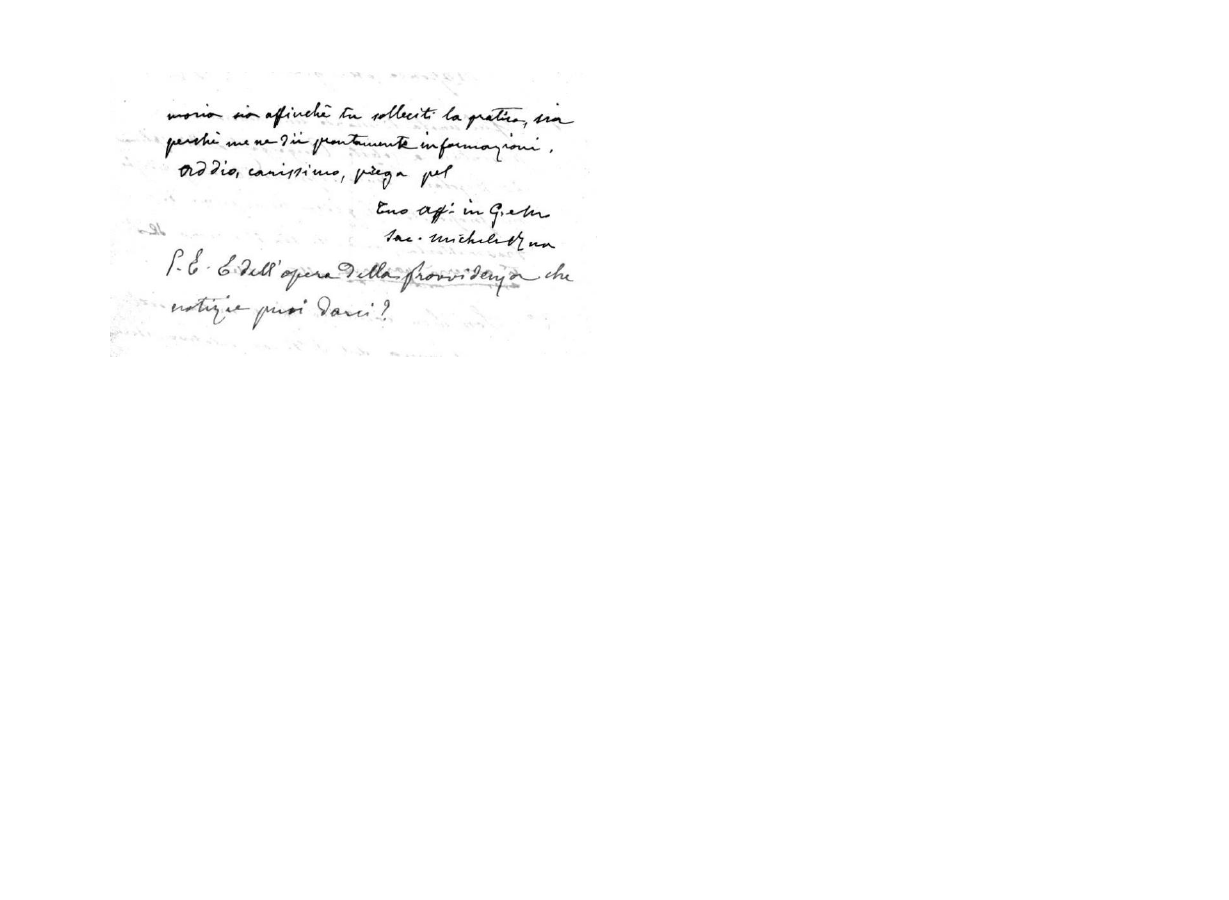 moria sia affinchè tu solleciti la pratica, sia
perchè me ne dii prontamente informazioni.
Addio, carissimo, prega pel
tuo aff. in G. e M.
Sac. Michele Rua
P. E. E dell'opera della Provvidenza che
notizie puoi darci?